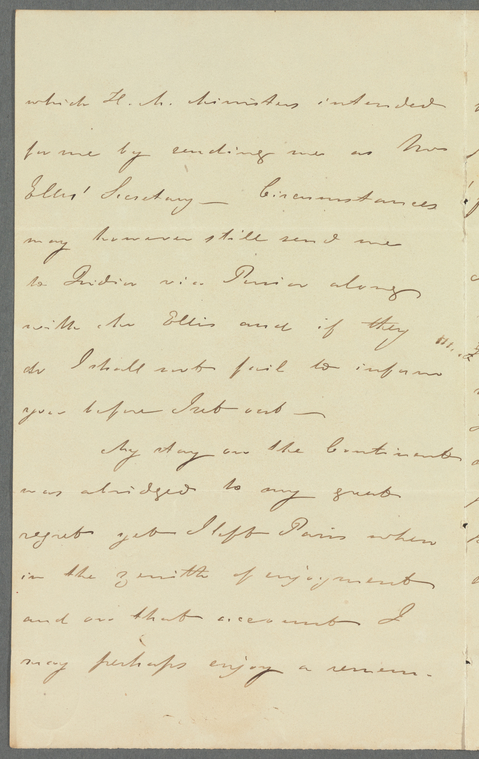 which H. M. Ministers intended
for me by sending me as Mr
Ellis' Secretary — Circumstances
may however still send me
to India via Persia along
with Mr Ellis and if they
do I shall not fail to inform
you before I set out —
My stay on the Continent
was abridged to my great
regret yet I left Paris when
in the zenith of enjoyment
and on that account I
may perhaps enjoy a remem-